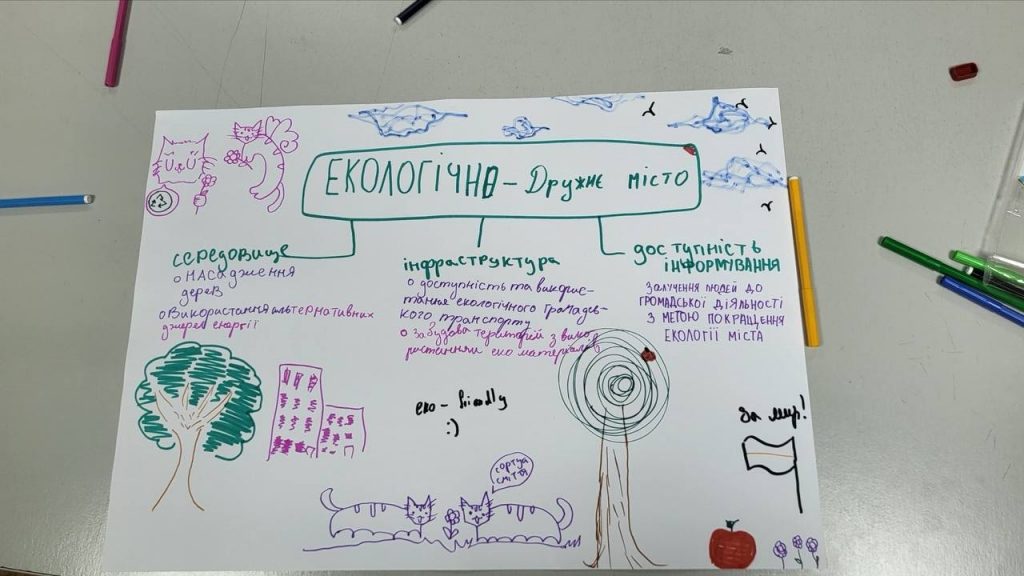 ЕКОЛОГІЧНО - Дружнє місто
середовище
насадження
дерев
Використання альтернативних
джерел енергії
інфраструктура
доступність та викорис-
тання екологічного громадсь-
кого транспорту
забудова територій з вико-
ристанням еко матеріалів
доступність
інформування
ЗАЛУЧЕННЯ ЛЮДЕЙ ДО
ГРОМАДСЬКОЇ ДІЯЛЬНОСТІ
З МЕТОЮ ПОКРАЩЕННЯ
ЕКОЛОГІЇ МІСТА
еко - friendly
:)
сортуй
сміття
За мир!